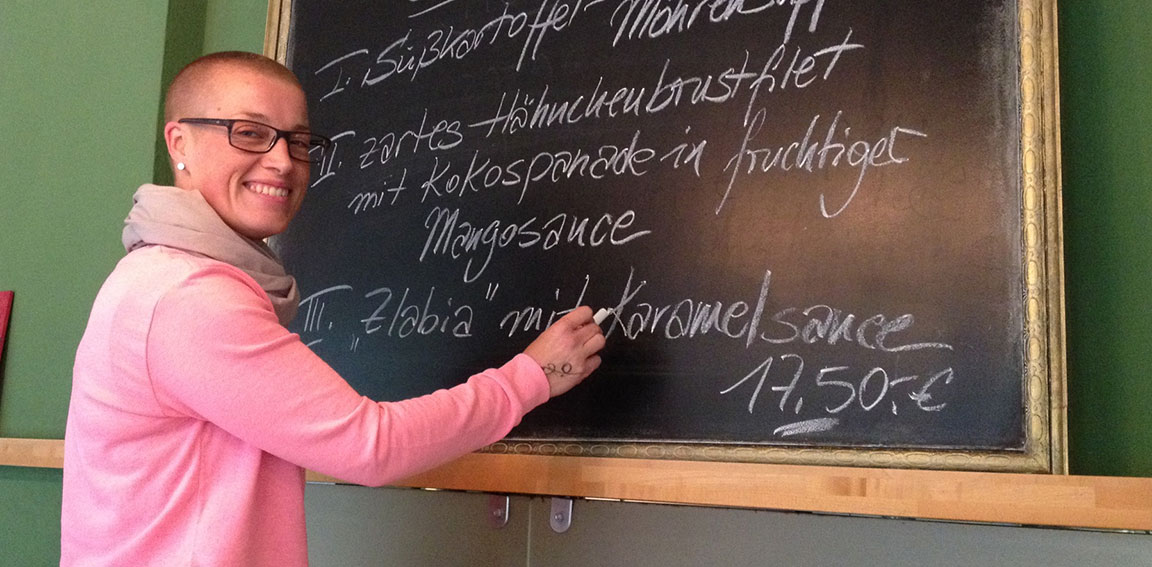 I. Süßkartoffel- Möhren
II. zartes Hähnchenbrustfilet
mit Kokospanade in fruchtiger
Mangosauce
III. "Zlabia" mit Karamelsauce
17,50,-€